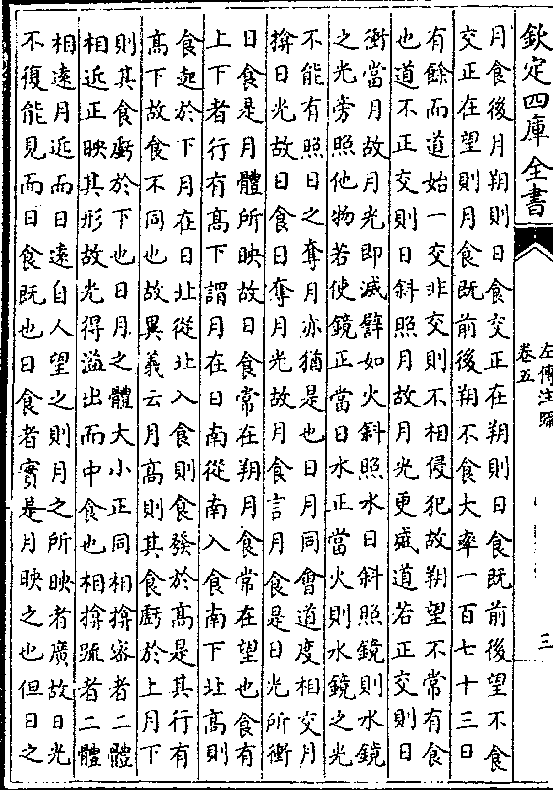 欽定四庫全書
左傳注疏
卷五
三
月食後月朔則日食交正在朔則日食既前後望不食
交正在望則月食既前後朔不食大率一百七十三日
有餘而道始一交非交則不相侵犯故朔望不常有食
也道不正交則日斜照月故月光更盛道若正交則日
衝當月故月光即滅譬如火斜照水日斜照鏡則水鏡
之光旁照他物若使鏡正當日水正當火則水鏡之光
不能有照日之奪月亦猶是也日月同會道度相交月
揜日光故日食日奪月光故月食言月食是日光所衝
日食是月體所映故日食常在朔月食常在望也食有
上下者行有髙下謂月在日南從南入食南下北髙則
食起於下月在日北從北入食則食發於髙是其行有
髙下故食不同也故異義云月髙則其食虧於上月下
則其食虧於下也日月之體大小正同相揜宻者二體
相近正映其形故光得溢出而中食也相揜疏者二體
相遠月近而日遠自人望之則月之所映者廣故日光
不復能見而日食既也日食者實是月映之也但日之